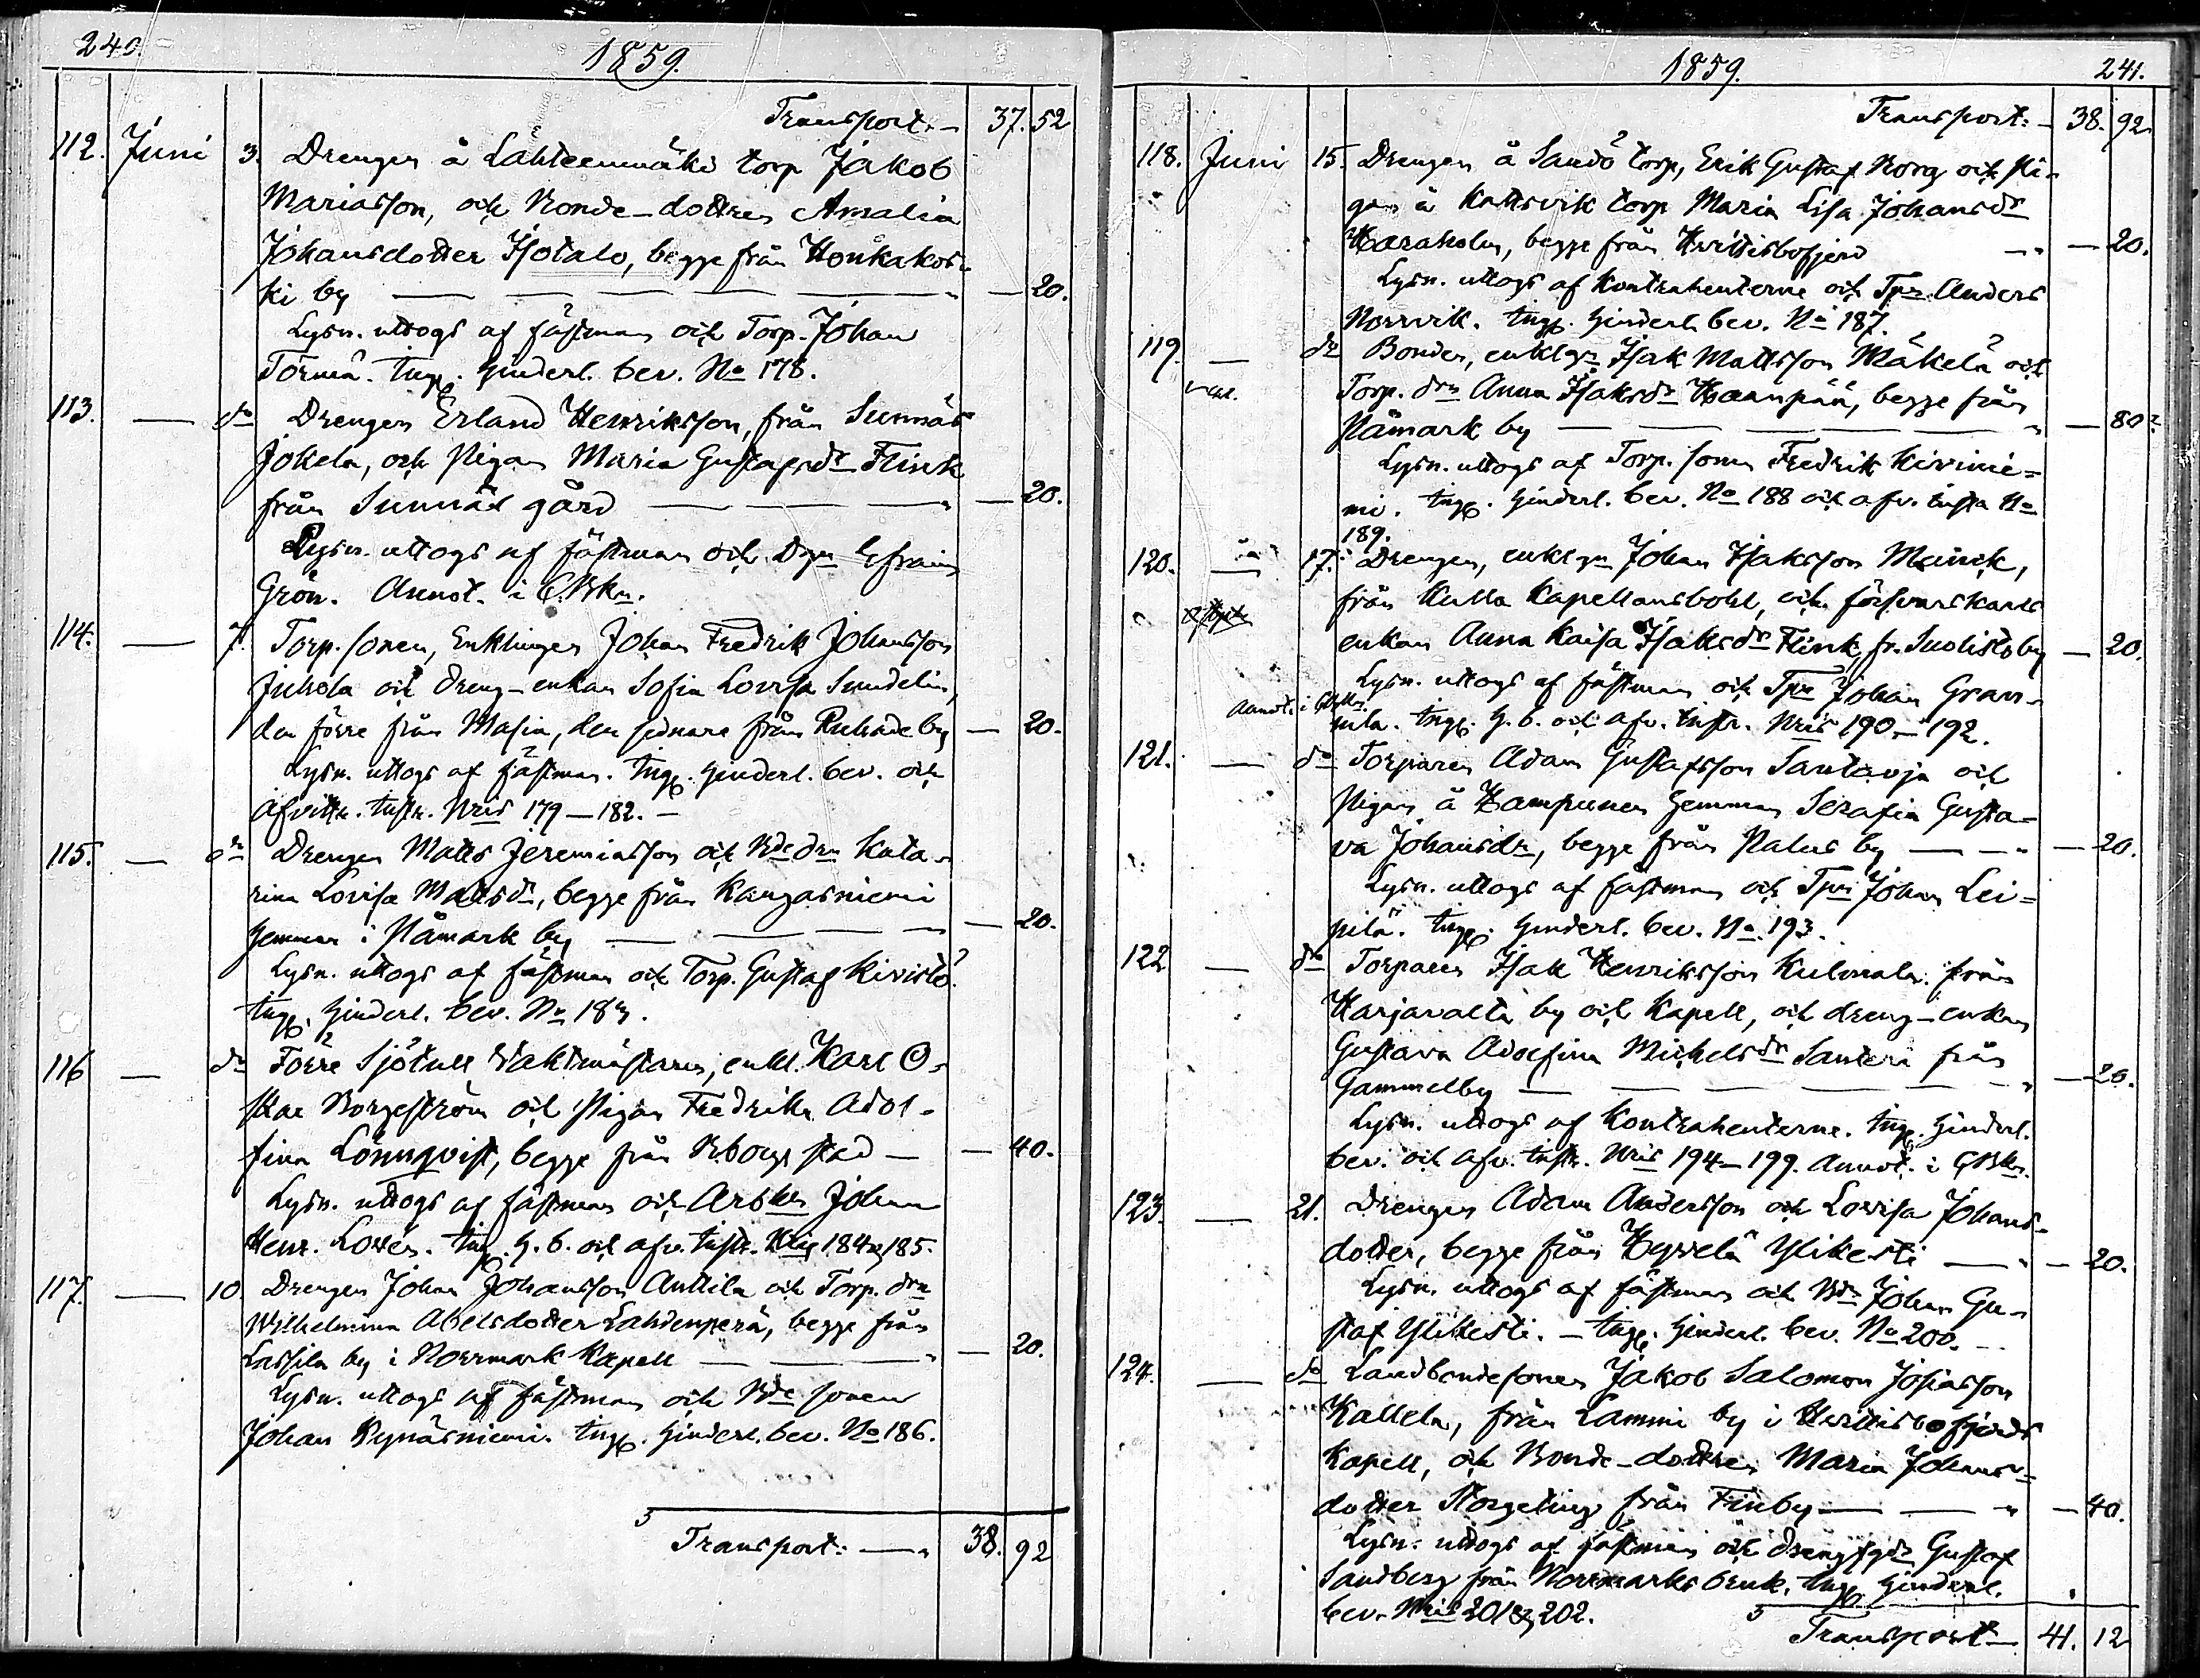 240. 1859.
Transport.- 37. 52
112. Juni 3. Drengen å Lähteenmäki torp Jakob
Mariasson, och Bonde-dottren Amalia
Johansdotter Isotalo, begge från Honkakos-
ki by — 20.
Lysn. uttogs af fästman och Torp. Johan
Törmä. Ingg. hinderl. bev. No 178.
113. — do Drengen Erland Henriksson, från Sunnäs
Jokela, och Pigan Maria Gustafsdr Flink
från Sunnäs gård — 20.
Lysn. uttogs af fästman och Dgn Efraim
Grön. Annot. i C.Bkn.
114. — 7. Torp. sonen, Enklingen Johan Fredrik Johansson
Juhola och dreng-enkan Sofia Lovisa Sundelin,
den förre från Masia, den sednare från Ruhade by — 20.
Lysn. uttogs af fästman. Ingg. hinderl. bev. och
Afvittr. instr. Nris 179—182. —
115. — do Drengen Matts Jeremiasson och Bde drn Kata-
rina Lovisa Mattsdr, begge från Kangasniemi
hemman i Påmark by — 20.
Lysn. uttogs af fästman och Torp. Gustaf Kivistö.
Ingg. hinderl. bev. No 183.
116 — do Förre Sjötull Vaktmästaren, enkl. Karl O-
skar Borgström och Pigan Fredrika Adol-
fina Lönnqvist, begge från Bborgs stad — 40.
Lysn. uttogs af fästman och Arbkn Johan
Henr. Lovén. Ingg. h. b. och afv. instr. Nris 184 & 185.
117. — 10. Drengen Johan Johansson Anttila och Torp. drn
Wilhelmina Abelsdotter Lahdenperä, begge från
Lassila by i Norrmark Kapell — 20.
Lysn. uttogs af fästman och Bde sonen
Johan Rynäsniemi. Ingg. hinderl. bev. No 186.
Transport: — 38. 92
1859. 241.
Transport: - 38. 92.
118. Juni 15. Drengen å Sandö torp, Erik Gustaf Borg och Pi-
gan å Kattsvik torp Maria Lisa Johansdr
Haraholm, begge från Hvittisbofjerd — 20.
Lysn. uttogs af Kontrahenterne och Tpr. Anders
Norrvik. Ingg. hinderl. bev. No 187.
119. — do Bonden, enklgn Isak Mattsson Mäkelä och
Torp. drn Anna Isaksdr Haanpää, begge från
Påmark by — 80.
Lysn. uttogs af Torp. sonen Fredrik Kivinie-
mi. Ingg. hinderl. bev. No 188 och afv. instr. No
189.
120. — 17. Drengen, enklgn Johan Isaksson Munck,
från Kulla Kapellansbohl, och försvarskarls
enkan Anna Kaisa Isaksdr Flink, fr. Suolisto by — 20.
Lysn. uttogs af fästman och Tpr Johan Gran-
Annot. i C.Bkn.
nila. Ingg. h. b. och afv. instr. Nris 190—192.
121. — do Torparen Adam Gustafsson Santaoja och
Pigan å Hampunen hemman Serafia Gusta-
va Johansdr, begge från Palus by — 20.
Lysn. uttogs af fästman och Tpr Johan Lei-
pilä. Ingg. hinderl. bev. No 193.
122 — do Torparen Isak Henriksson Kulmala från
Harjavalta by och Kapell, och dreng-enkan
Gustava Adolfina Michelsdr Santeri från
Gammelby — 20.
Lysn. uttogs af Kontrahenterne. Ingg. hinderl.
bev. och afv. instr. Nris 194—199. Annot. i C.Bkn.
123. — 21. Drengen Adam Andersson och Lovisa Johans-
dotter, begge från Hyvelä Ylikesti — 20.
Lysn. uttogs af fästman och Bdn Johan Gu-
staf Ylikesti. — Ingg. hinderl. bev. No 200.
124. — do Landbondesonen Jakob Salomon Josiasson
Kallela, från Lammi by i Hvittisbofjerds
Kapell, och Bonde-dottren Maria Johans-
dotter Norgeling från Finby — 40.
Lysn. uttogs af fästman och drengsgn Gustaf
Sandberg från Norrmarks bruk. Ingg. hinderl.
bev. Nris 201 & 202.
Transport — 41. 12